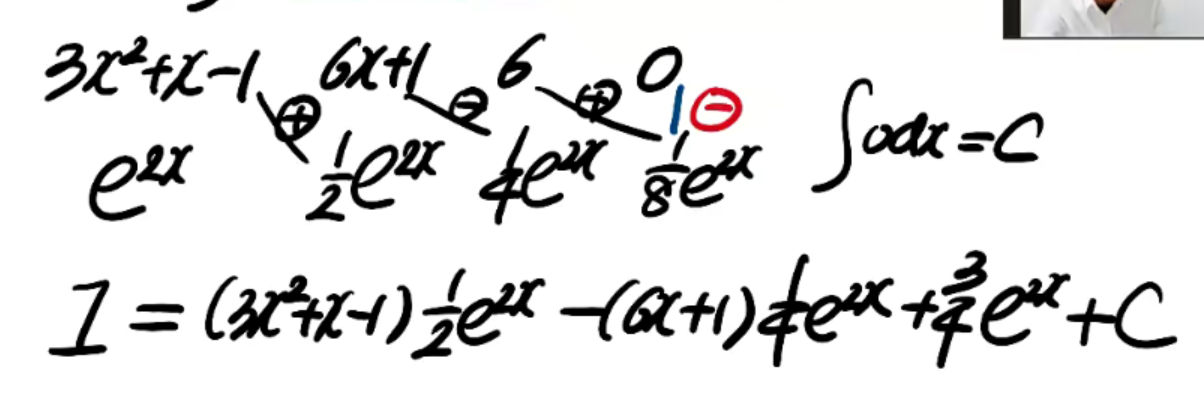 3x²+x-1 ⊕ 6x+1 ⊖ 6 ⊕ 0 | ⊖
e²ˣ 1/2 e²ˣ 1/4 e²ˣ 1/8 e²ˣ ∫0dx=C
I = (3x²+x-1) 1/2 e²ˣ -(6x+1) 1/4 e²ˣ + 3/4 e²ˣ + C